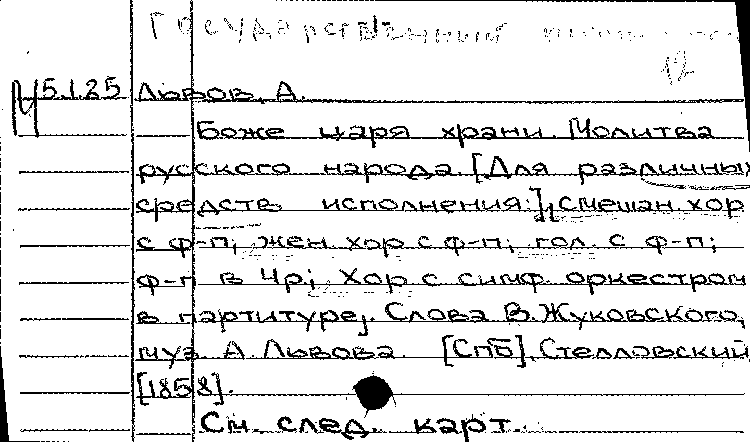 Государственный
12
Ц 5.1.25 Львов, А.
Боже царя храни. Молитва
русского народа. [Для различных
средств исполнения:], смешан. хор
с ф-п; жен. хор с ф-п; гол. с ф-п;
ф-п в 4р; Хор с симф. оркестром
в партитуре. Слова В. Жуковского,
муз. А. Львова. [СПб], Стелловский
[1858].
См. след. карт.